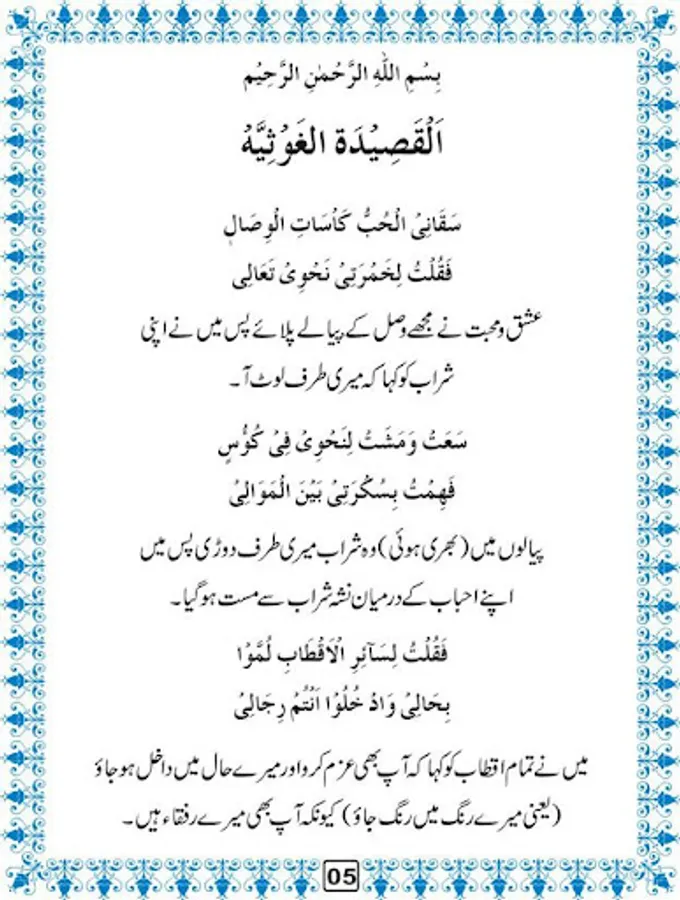 بِسْمِ اللهِ الرَّحْمٰنِ الرَّحِيْمِ
اَلْقَصِيْدَة الغَوْثِيَّهْ
سَقَانِىْ الْحُبُّ كَاْسَاتِ الْوِصَالِ
فَقُلْتُ لِخَمْرَتِىْ نَحْوِىْ تَعَالِى
عشق و محبت نے مجھے وصل کے پیالے پلائے پس میں نے اپنی
شراب کو کہا کہ میری طرف لوٹ آ۔
سَعَتْ وَمَشَتْ لِنَحْوِىْ فِىْ كُؤُسٍ
فَهِمْتُ بِسُكْرَتِىْ بَيْنَ الْمَوَالِىْ
پیالوں میں (بھری ہوئی) وہ شراب میری طرف دوڑی پس میں
اپنے احباب کے درمیان نشہ شراب سے مست ہو گیا۔
فَقُلْتُ لِسَآئِرِ الْاَقْطَابِ لُمُّوْا
بِحَالِىْ وَادْ خُلُوْا اَنْتُمْ رِجَالِىْ
میں نے تمام اقطاب کو کہا کہ آپ بھی عزم کرو اور میرے حال میں داخل ہو جاؤ
(یعنی میرے رنگ میں رنگ جاؤ) کیونکہ آپ بھی میرے رفقاء ہیں۔
05